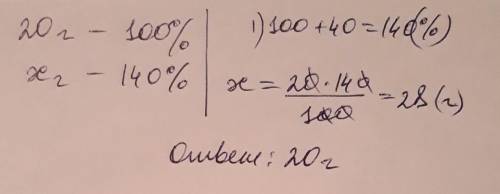 20 г – 100%
x г – 140%
1) 100 + 40 = 140 (%)
x = 20 · 140 / 100 = 28 (г)
Ответ: 20 г